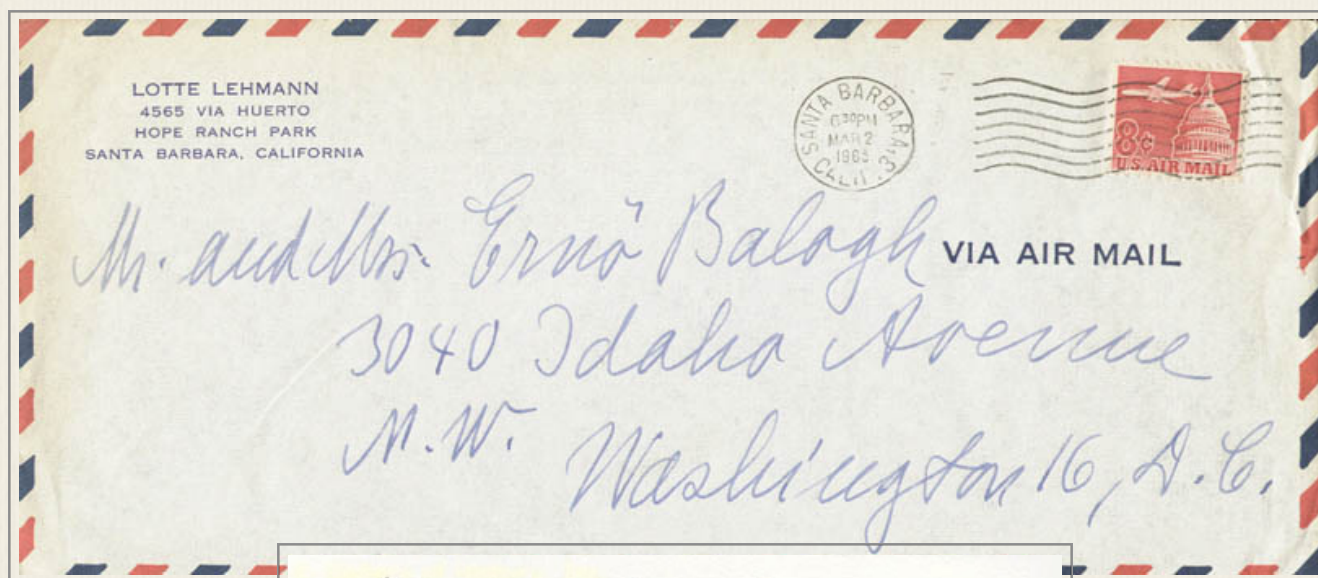 LOTTE LEHMANN
4565 VIA HUERTO
HOPE RANCH PARK
SANTA BARBARA, CALIFORNIA
SANTA BARBARA,
CALIF.
630PM
MAR 2
8¢
U.S. AIR MAIL
Mr. and Mrs. Ernö Balogh
VIA AIR MAIL
3040 Idaho Avenue
N.W.
Washington 16, D.C.